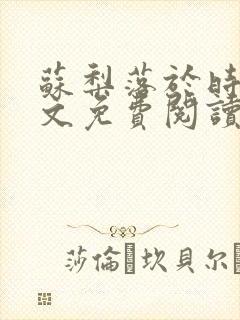 蘇梨落於時
文免費閱讀
莎倫·坎貝爾